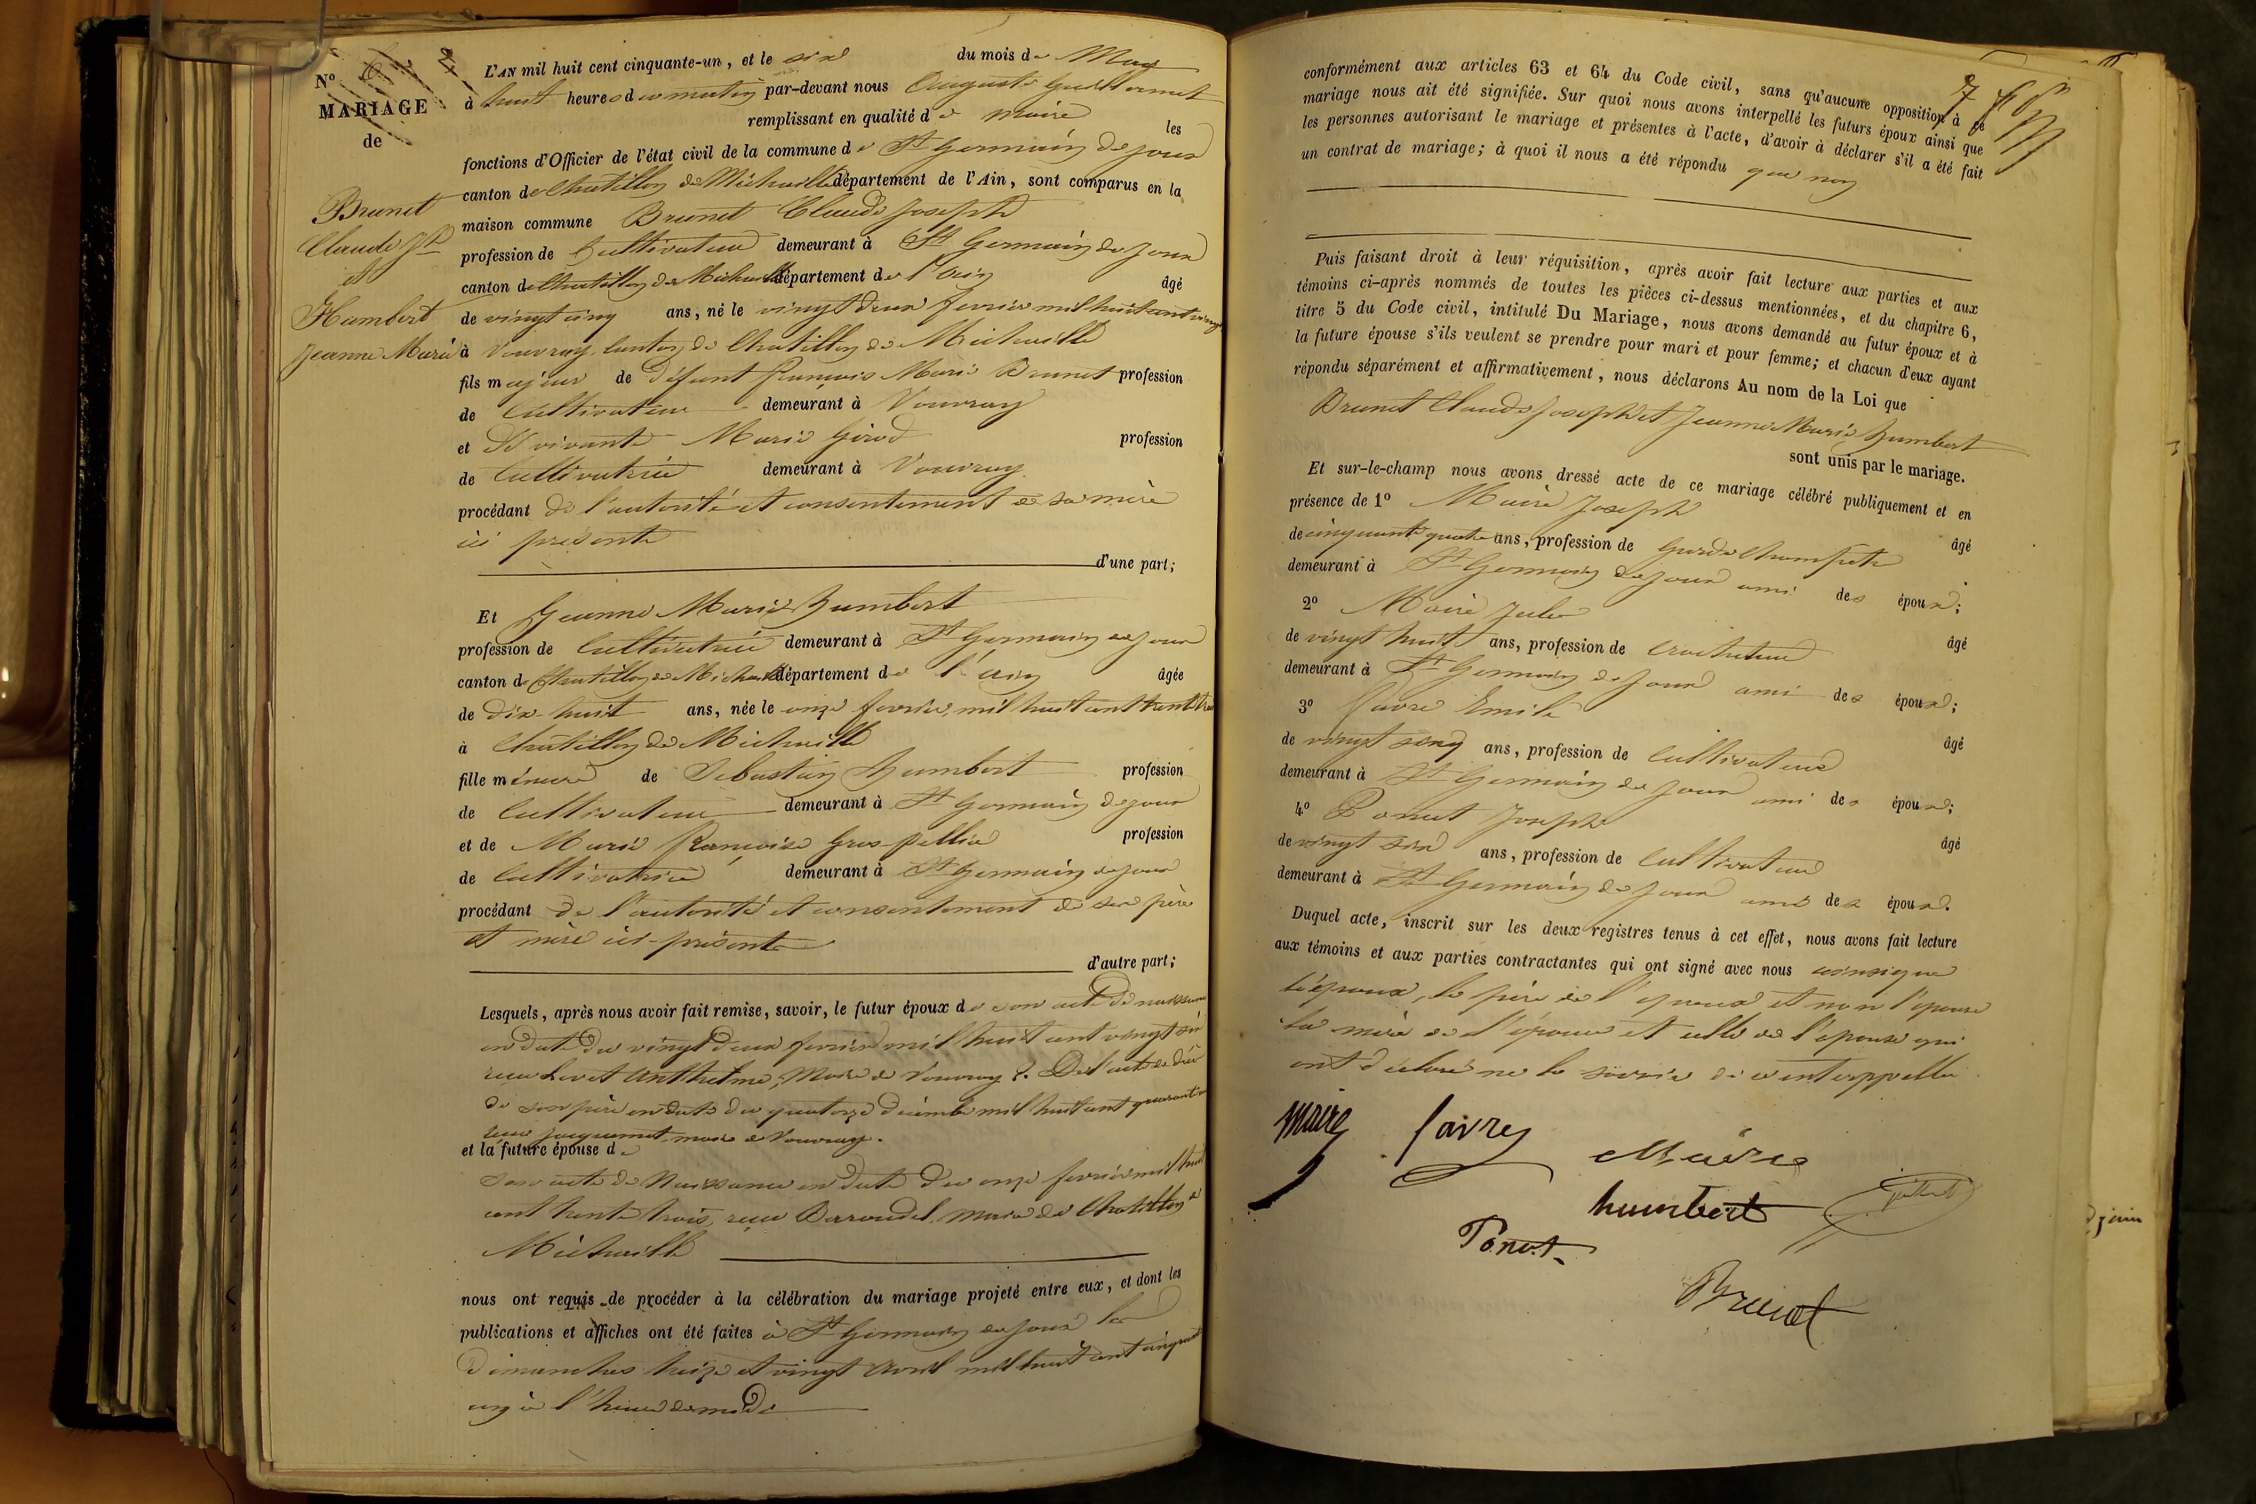 N° 6
MARIAGE
de
Brunet
Claude Jh
et
Humbert
Jeanne Marie
L'AN mil huit cent cinquante-un, et le six du mois de May
à huit heures du matin par-devant nous Auguste Guillermet
remplissant en qualité de maire les
fonctions d'Officier de l'état civil de la commune de St Germain de Joux
canton de Chatillon de Michaille département de l'Ain, sont comparus en la
maison commune Brunet Claude Joseph
profession de Cultivateur demeurant à St Germain de Joux
canton de Chatillon de Michaille département de l'Ain âgé
de vingt cinq ans, né le vingt deux fevrier mil huit cent vingt
à Vouvray canton de Chatillon de Michaille
fils majeur de défunt François Marie Brunet profession
de Cultivateur demeurant à Vouvray
et de vivante Marie Girod profession
de Cultivatrice demeurant à Vouvray
procédant de l'autorité et consentement de sa mère
ici présente
d'une part;
Et Jeanne Marie Humbert
profession de Cultivatrice demeurant à St Germain de Joux
canton de Chatillon de Michaille département de l'Ain âgée
de dix-huit ans, née le onze fevrier mil huit cent trente trois
à Chatillon de Michaille
fille mineure de Sebastien Humbert profession
de Cultivateur demeurant à St Germain de Joux
et de Marie Françoise Gros-pellier profession
de Cultivatrice demeurant à St Germain de Joux
procédant de l'autorité et consentement de ses père
et mère ici-présents
d'autre part;
Lesquels, après nous avoir fait remise, savoir, le futur époux de son acte de naissance
en date du vingt deux fevrier mil huit cent vingt six
reçu Anthelme, Maire de Vouvray 2. De l'acte de décè
de son père en date du quatorze décembre mil huit cent quarante
reçu Jacquemet maire de Vouvray.
et la future épouse de
son acte de Naissance en date du onze fevrier mil huit
cent trente trois, reçu Baroudel, maire de Chatillon de
Michaille
nous ont requis de procéder à la célébration du mariage projeté entre eux, et dont les
publications et affiches ont été faites à St Germain de Joux les
dimanches treize et vingt avril mil huit cent cinquante
un à l'heure de midi
7
conformément aux articles 63 et 64 du Code civil, sans qu'aucune opposition à ce
mariage nous ait été signifiée. Sur quoi nous avons interpellé les futurs époux ainsi que
les personnes autorisant le mariage et présentes à l'acte, d'avoir à déclarer s'il a été fait
un contrat de mariage; à quoi il nous a été répondu que non
Puis faisant droit à leur réquisition, après avoir fait lecture aux parties et aux
témoins ci-après nommés de toutes les pièces ci-dessus mentionnées, et du chapitre 6,
titre 5 du Code civil, intitulé Du Mariage, nous avons demandé au futur époux et à
la future épouse s'ils veulent se prendre pour mari et pour femme; et chacun d'eux ayant
répondu séparément et affirmativement, nous déclarons Au nom de la Loi que
Brunet Claude Joseph et Jeanne Marie Humbert
sont unis par le mariage.
Et sur-le-champ nous avons dressé acte de ce mariage célébré publiquement et en
présence de 1° Maire Joseph âgé
de cinquante quatre ans, profession de Garde Champêtre
demeurant à St Germain de Joux ami des époux;
2° Maire Jules âgé
de vingt huit ans, profession de
demeurant à St Germain de Joux ami des époux;
3° Favre Emile âgé
de vingt cinq ans, profession de Cultivateur
demeurant à St Germain de Joux ami des époux;
4° Ponut Joseph âgé
de vingt six ans, profession de Cultivateur
demeurant à St Germain de Joux ami des époux.
Duquel acte, inscrit sur les deux registres tenus à cet effet, nous avons fait lecture
aux témoins et aux parties contractantes qui ont signé avec nous ainsi que
l'époux, le père de l'épouse et non l'épouse
la mère de l'époux et celle de l'épouse qui
ont déclaré ne le savoir de ce interppellé
Maire favre Maire
humbert
Ponut
Brunet
juin